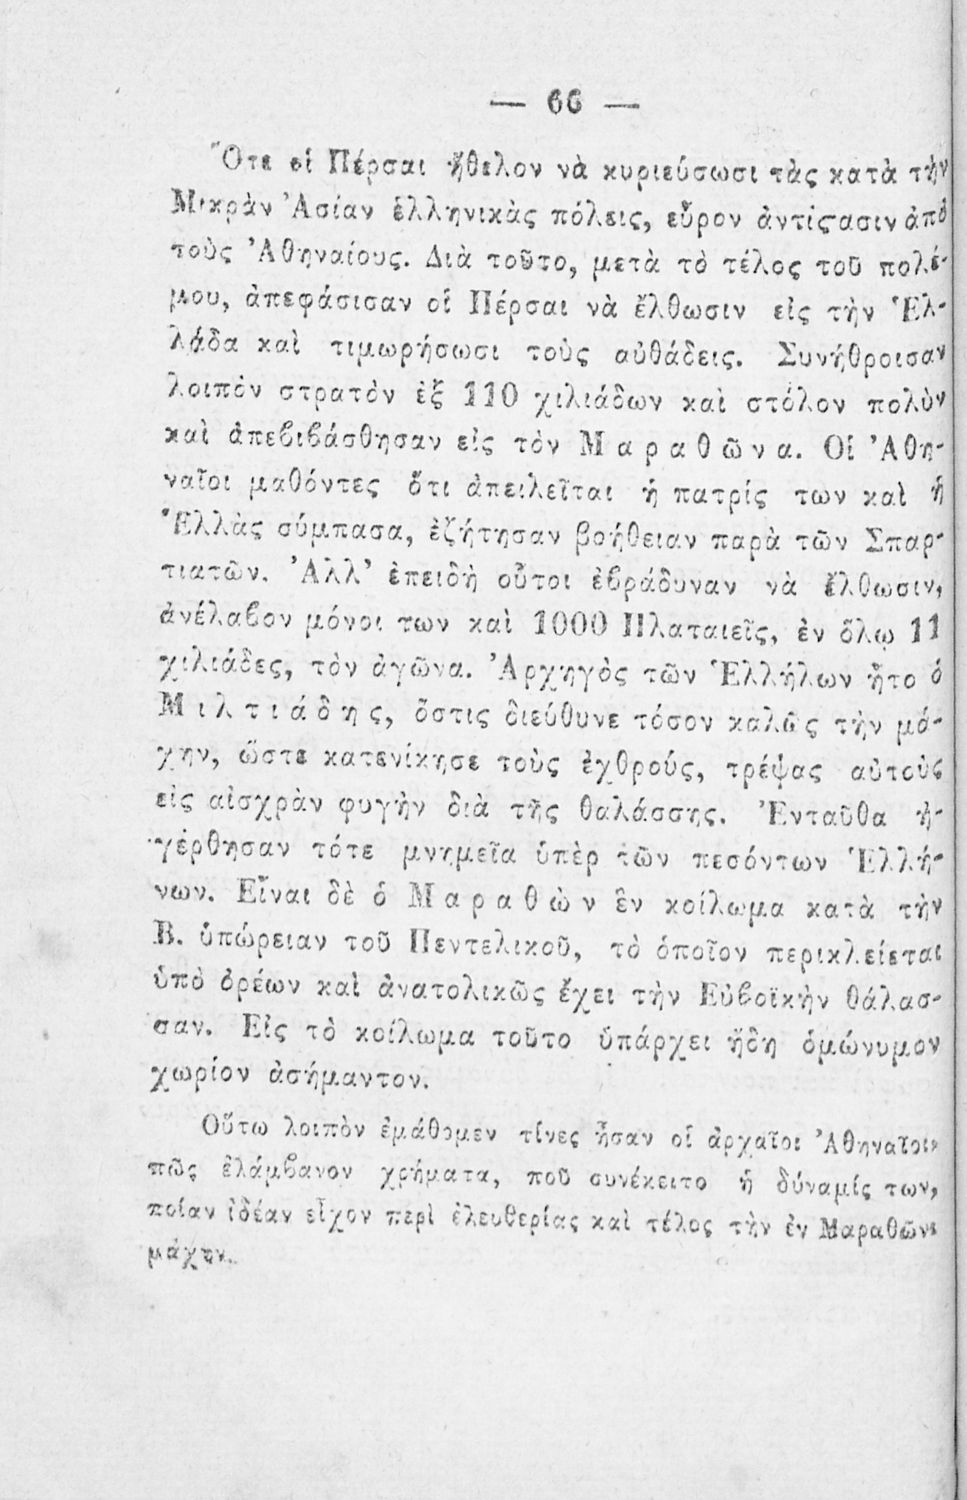 — 66 —
Ὅτε οἱ Πέρσαι ἤθελον νὰ κυριεύσωσι τὰς κατὰ τὴν
Μικρὰν Ἀσίαν ἑλληνικὰς πόλεις, εὗρον ἀντίςασιν ἀπὸ
τοὺς Ἀθηναίους. Διὰ τοῦτο, μετὰ τὸ τέλος τοῦ πολέ-
μου, ἀπεφάσισαν οἱ Πέρσαι νὰ ἔλθωσιν εἰς τὴν Ἑλ-
λάδα καὶ τιμωρήσωσι τοὺς αὐθάδεις. Συνήθροισαν
λοιπὸν στρατὸν ἐξ 110 χιλιάδων καὶ στόλον πολὺν
καὶ ἀπεβιβάσθησαν εἰς τὸν Μαραθῶνα. Οἱ Ἀθη-
ναῖοι μαθόντες ὅτι ἀπειλεῖται ἡ πατρίς των καὶ ἡ
Ἑλλὰς σύμπασα, ἐζήτησαν βοήθειαν παρὰ τῶν Σπαρ-
τιατῶν. Ἀλλ’ ἐπειδὴ οὗτοι ἐβράδυναν νὰ ἔλθωσιν,
ἀνέλαβον μόνοι των καὶ 1000 Πλαταιεῖς, ἐν ὅλῳ 11
χιλιάδες, τὸν ἀγῶνα. Ἀρχηγὸς τῶν Ἑλλήλων ἦτο ὁ
Μιλτιάδης, ὅστις διεύθυνε τόσον καλῶς τὴν μά-
χην, ὥστε κατενίκησε τοὺς ἐχθρούς, τρέψας αὐτοὺς
εἰς αἰσχρὰν φυγὴν διὰ τῆς θαλάσσης. Ἐνταῦθα ἠ-
γέρθησαν τότε μνημεῖα ὑπὲρ τῶν πεσόντων Ἑλλή-
νων. Εἶναι δὲ ὁ Μαραθὼν ἓν κοίλωμα κατὰ τὴν
Β. ὑπώρειαν τοῦ Πεντελικοῦ, τὸ ὁποῖον περικλείεται
ὑπὸ ὀρέων καὶ ἀνατολικῶς ἔχει τὴν Εὐβοϊκὴν θάλασ-
σαν. Εἰς τὸ κοίλωμα τοῦτο ὑπάρχει ἤδη ὁμώνυμον
χωρίον ἀσήμαντον.
Οὕτω λοιπὸν ἐμάθομεν τίνες ἦσαν οἱ ἀρχαῖοι Ἀθηναῖοι,
πῶς ἐλάμβανον χρήματα, ποῦ συνέκειτο ἡ δύναμίς των,
ποίαν ἰδέαν εἶχον περὶ ἐλευθερίας καὶ τέλος τὴν ἐν Μαραθῶνι
μάχην.